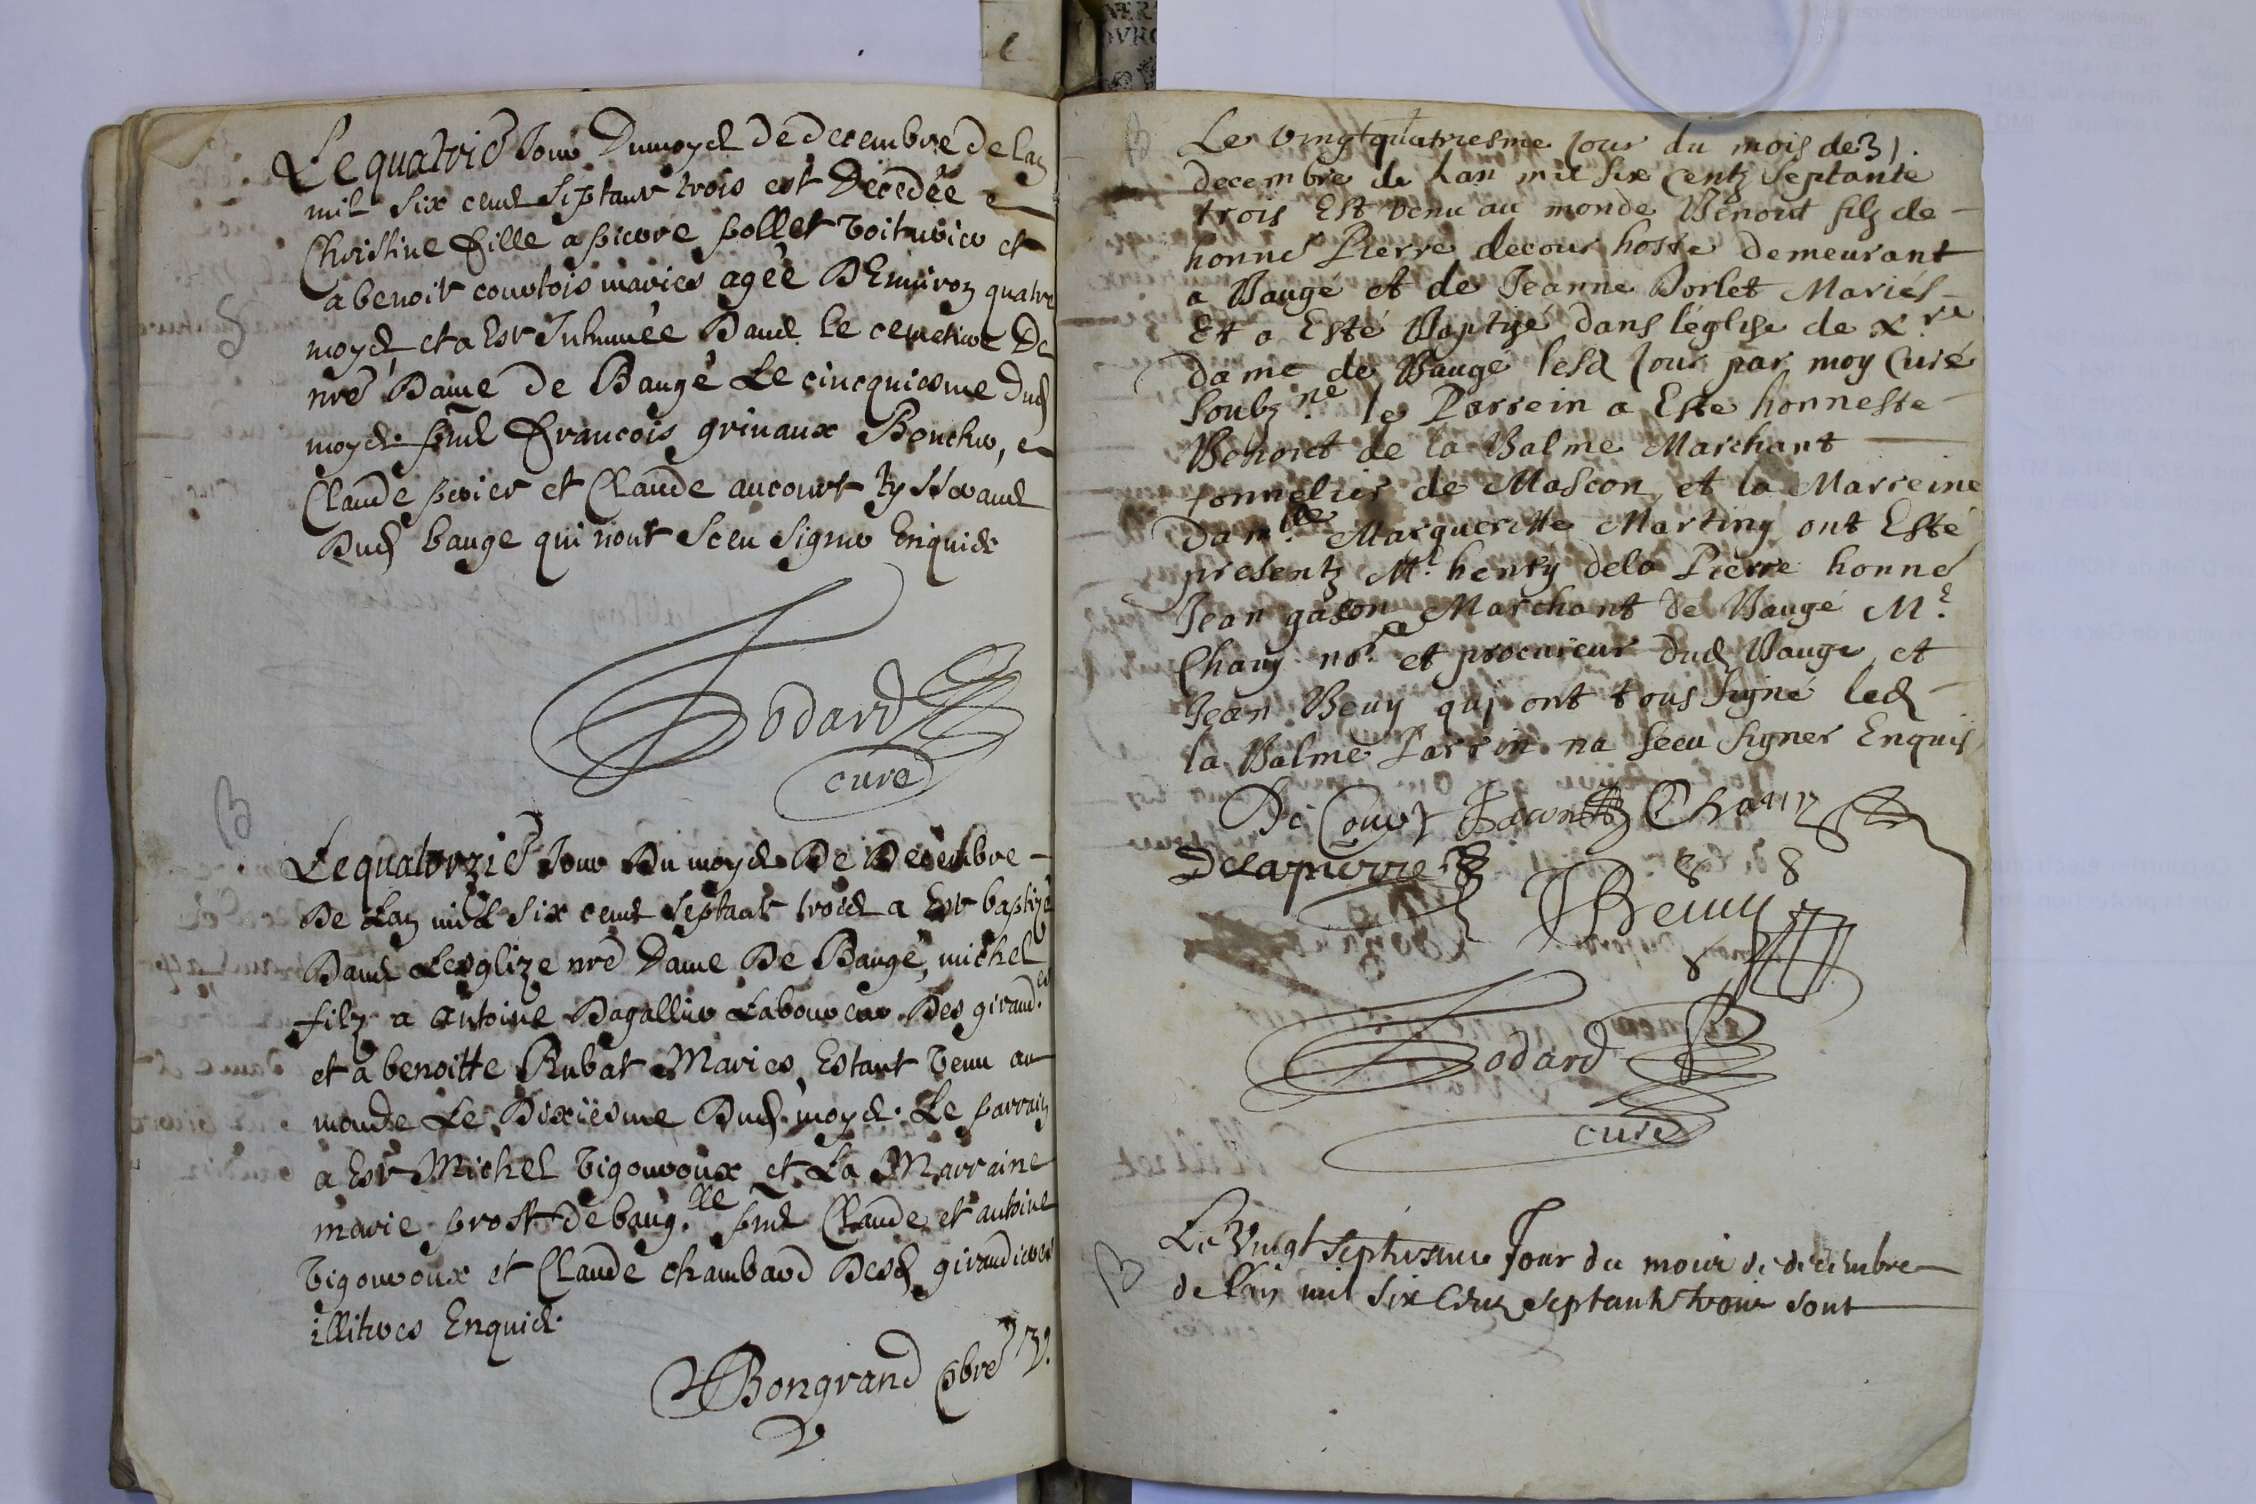 Le quatrie Jour du moys de decembre de lan
mil six cens septante trois est decedée
Christine fille a pierre pollet voiturier et
a benoite courtois maries agée d'Environ quatre
moys, et a este Inhumée dans le cemetiere de
nre Dame de Baugé Le cincquiesme dud
moys. pns François grinaux Boucher,
Claude perier et Claude aucourt tysserand
dud bauge qui nont sceu signer Enquis
Godard
curé
B
Le quatorzie Jour du moys de Decembre
De Lan mil six cens septante trois a este baptizé
Dans Lesglize nre Dame De Baugé, michel
filz a antoine dagallier Laboureur des giraud.es
et a benoitte Rubat Maries Estant venu au
monde Le dixiesme dud. moys. Le parrain
a este Michel vigouroux et La Marraine
marie prost de baug. pns Claude et antoine
vigouroux et Claude chambard desd giraudieres
illitres Enquis.
Bongrand pbre V.
31.
B
Le vingt quatriesme Jour du mois de
decembre de Lan mil six centz septante
trois Est venu au monde Benoit filz de
honne Pierre decour hoste demeurant
a Baugé et de Jeanne Borlet Mariés
Et a Esté Baptisé dans léglise de N.re
dame de Baugé lesd Jour par moy Curé
soubz.né le Parrein a Esté honneste
Benoict de la Balme Marchant
tonnelier de Mascon et la Marreine
dam.lle Margueritte Martiny ont Esté
presentz M.r henry dela Pierre honne
Jean gacon Marchant de Baugé M.r
Chany no.re et procureur dud Baugé et
Jean Beuy qui ont tous signé led
la Balme Parrin na sceu signer Enquis
De Court Chany
Delapierre
J Beuy
Godard
curé
B
Le vingt septiesme Jour du mois de decembre
de l'an mil six cens septante trois sont